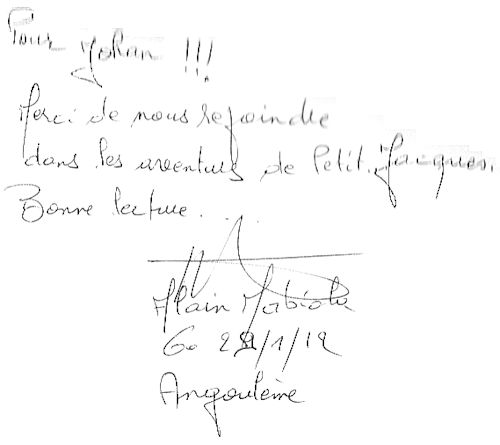 Pour Johan !!!
Merci de nous rejoindre
dans les aventures de Petit Jacques.
Bonne lecture...
Alain
29/1/12
Angoulême